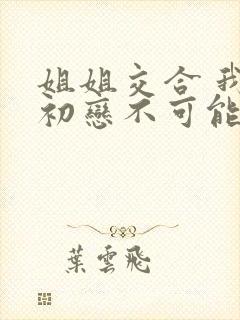 姐姐交合 我
初戀不可能
葉雲飛